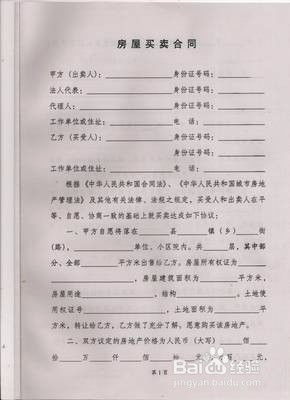 房屋买卖合同
甲方（出卖人）：__________身份证号码：__________
法人代表：__________身份证号码：__________
代理人：__________身份证号码：__________
工作单位或住址：__________电 话：__________
乙方（买受人）：__________身份证号码：__________
身份证号码：__________
工作单位或住址：__________电 话：__________
根据《中华人民共和国合同法》、《中华人民共和国城市房地
产管理法》及其他有关法律、法规之规定，买受人和出卖人在平
等、自愿、协商一致的基础上就买卖达成如下协议：
一、甲方自愿将座落在______县______镇（乡）______街
（路），__________单位，小区院内。共____层，其中部
分、全部__________平方米出售给乙方。房屋所有权证为
__________，房屋建筑面积为__________平方米，
房屋用途__________、结构__________。土地使
用权证号__________，土地面积为__________平
方米，转让给乙方，乙方做了充分了解，愿意购买该房地产。
二、双方议定的房地产价格为人民币（大写）______佰
____拾____万____仟____佰____拾____元，
第1页
Baidu百科经验
jingyan.baidu.com